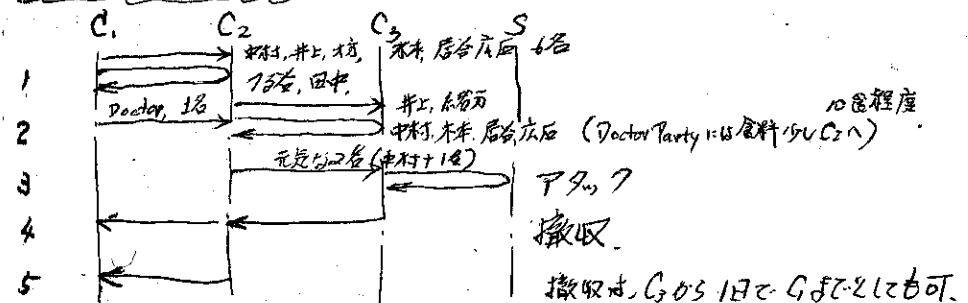 C₁ C₂ C₃ S
中村, 井上, 木本, 居谷, 広石 6名
1 田中,
Doctor, 1名 井上, 10食程度
2 中村, 木本, 居谷, 広石 (Doctor Partyには食料少しC₂へ)
元気な2名(中村+1名)
3 アタック
4 撤収.
5 撤収は, C₃から1日でC₁までとしても可.